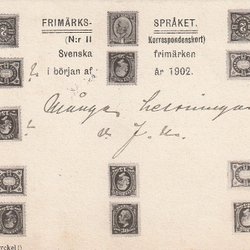 FRIMÄRKS- SPRÅKET.
(N:r II Korrespondenskort)
Svenska frimärken
i början af år 1902.
Många helsningar
d. J. d.
rckel!)